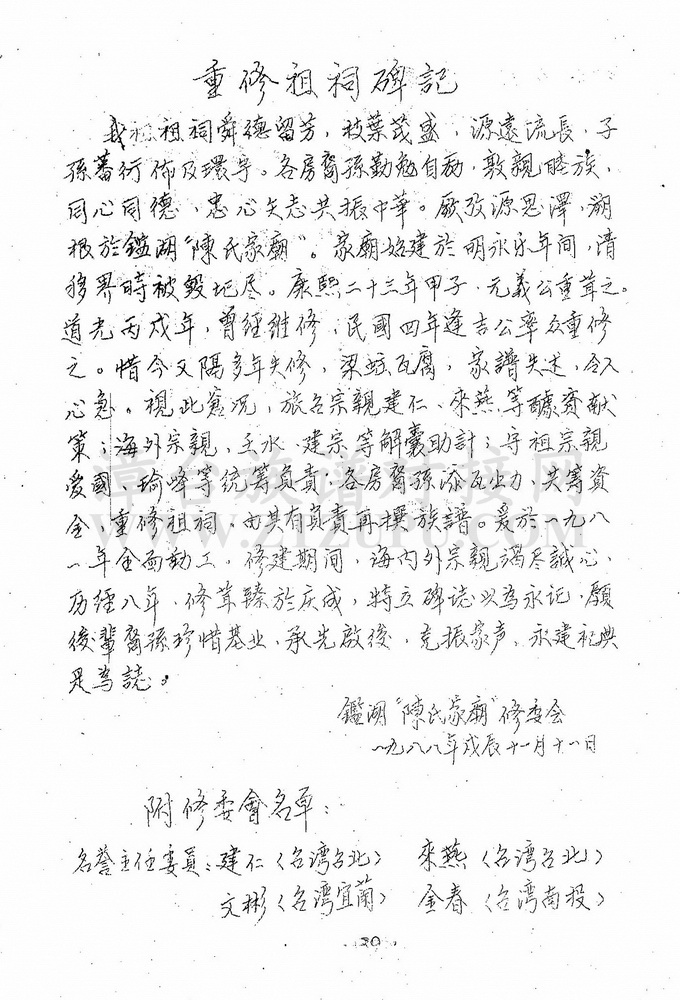 重修祖祠碑記
我祖祠舜德留芳，枝葉茂盛，源遠流長，子
孫蕃衍佈及環宇。各房裔孫勤勉自勵，敦親睦族，
同心同德，忠心矢志共振中華。厥攷源思澤，溯
根於鑑湖“陳氏家廟”。家廟始建於明永乐年间，清
移界時被毀圮尽。康熙二十三年甲子，元義公重葺之。
道光丙戌年，曾經維修，民國四年逢吉公率众重修
之。惜今又隔多年失修，梁蚛瓦腐，家譜失述，令人
心急。視此窘况，旅台宗親建仁、來燕等醵资献
策；海外宗親，玉水、建宗等解囊助計；守祖宗親
愛國、瑜峰等统筹負責；各房裔孫添瓦出力，共筹資
金，重修祖祠，由其有負責再撰族譜。爰於一九八
一年全面動工，修建期间，海内外宗親竭尽誠心，
历经八年，修葺臻於庆成，特立碑誌以為永记，願
後輩裔孫珍惜基业，承先啟後，克振家声，永建祀典
是為誌。
鑑湖“陳氏家廟”修委会
一九八八年戊辰十一月十一日
附修委會名单：
名誉主任委員：建仁（台湾台北） 來燕（台湾台北）
文彬（台湾宜蘭） 金春（台湾南投）
·20·